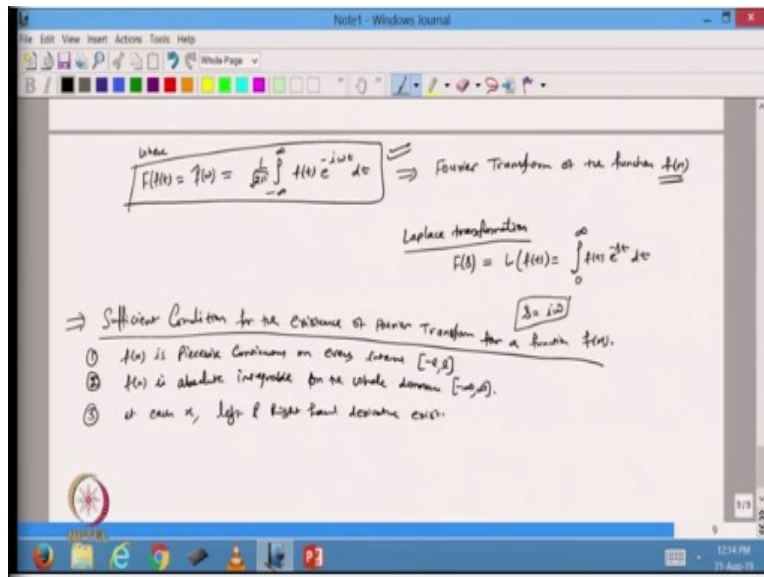 Note1 - Windows Journal
File Edit View Insert Actions Tools Help
Whole Page
where
F(f(t)) = f̂(ω) = 1/√2π ∫_{-∞}^{∞} f(t) e^{-iωt} dt ⇒ Fourier Transform of the function f(x)
Laplace transformation
F(s) = L(f(t)) = ∫_0^∞ f(t) e^{-st} dt
s = iω
⇒ Sufficient Condition for the existence of Fourier Transform for a function f(x).
① f(x) is Piecewise Continuous on every [-l, l]
② f(x) is absolute integrable on the whole domain [-∞, ∞).
③ at each x, left & Right hand derivative exist.
9/9
9
NPTEL
12:14 PM
31-Aug-19